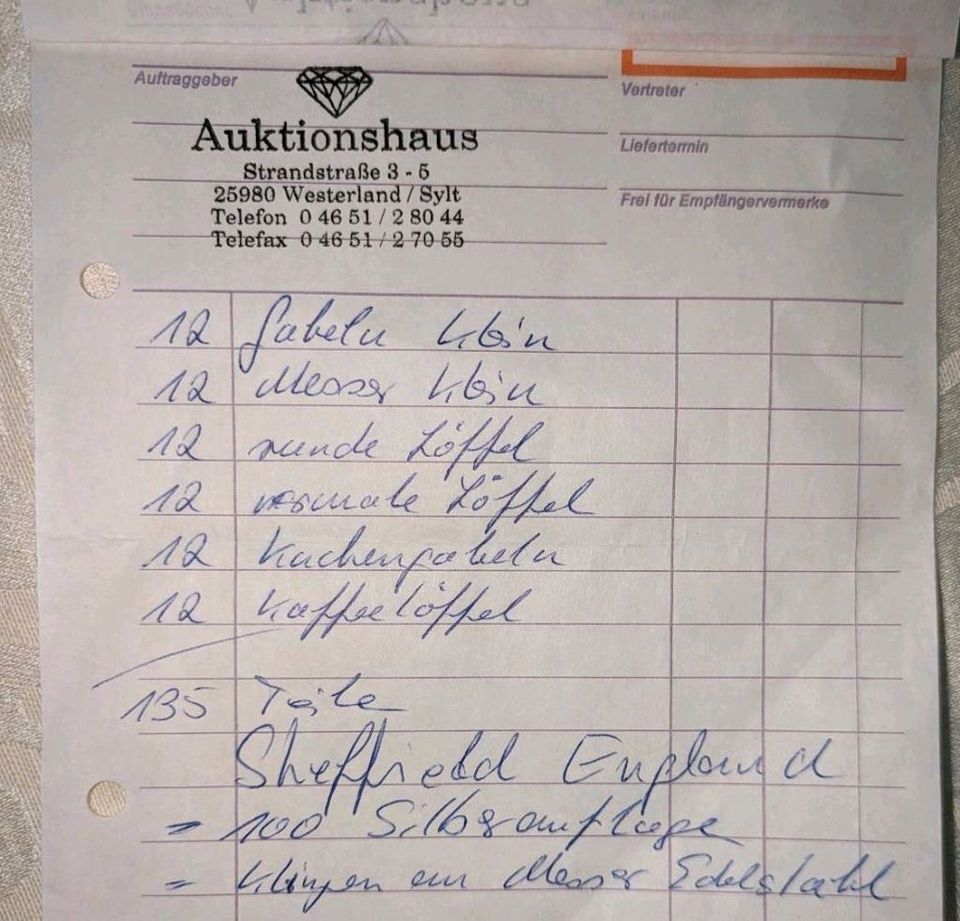 Auftraggeber
Auktionshaus
Strandstraße 3 - 5
25980 Westerland / Sylt
Telefon 0 46 51 / 2 80 44
Telefax 0 46 51 / 2 70 55
Vertreter
Liefertermin
Frei für Empfängervermerke
12 Gabeln klein
12 Messer klein
12 runde Löffel
12 normale Löffel
12 Kuchengabeln
12 Kaffeelöffel
135 Teile
Sheffield England
= 100 Silberauflage
= Klingen am Messer Edelstahl